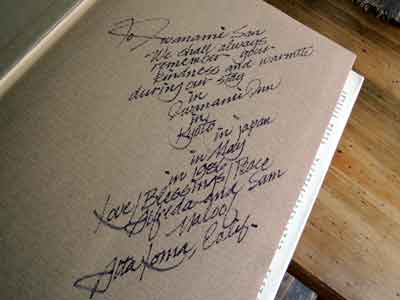 To Iwanami San
We shall always
remember your
kindness and warmth
during our stay
in
Iwanami Inn
in
Kyoto
in japan
in May
in 1986
Love/Blessings/Peace
Alfreda and Sam
Maloof
Alta Loma, Calif.